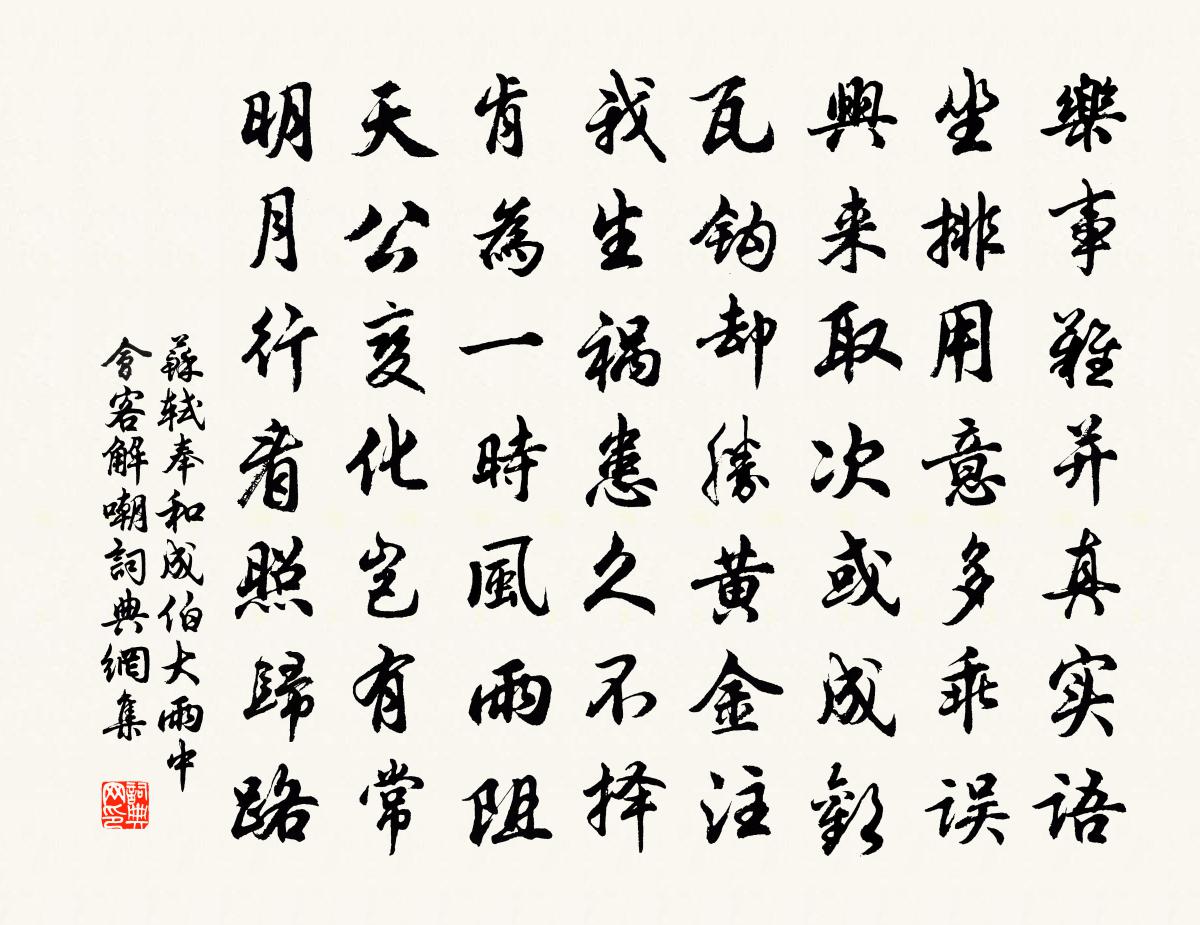 樂事難并真实語
坐排用意多乖误
興来取次或成歡
瓦钩却勝黄金注
我生禍患久不择
肯為一時風雨阻
天公变化岂有常
明月行看照歸路
蘇轼奉和成伯大雨中
會客解嘲詞典網集
詞典网印